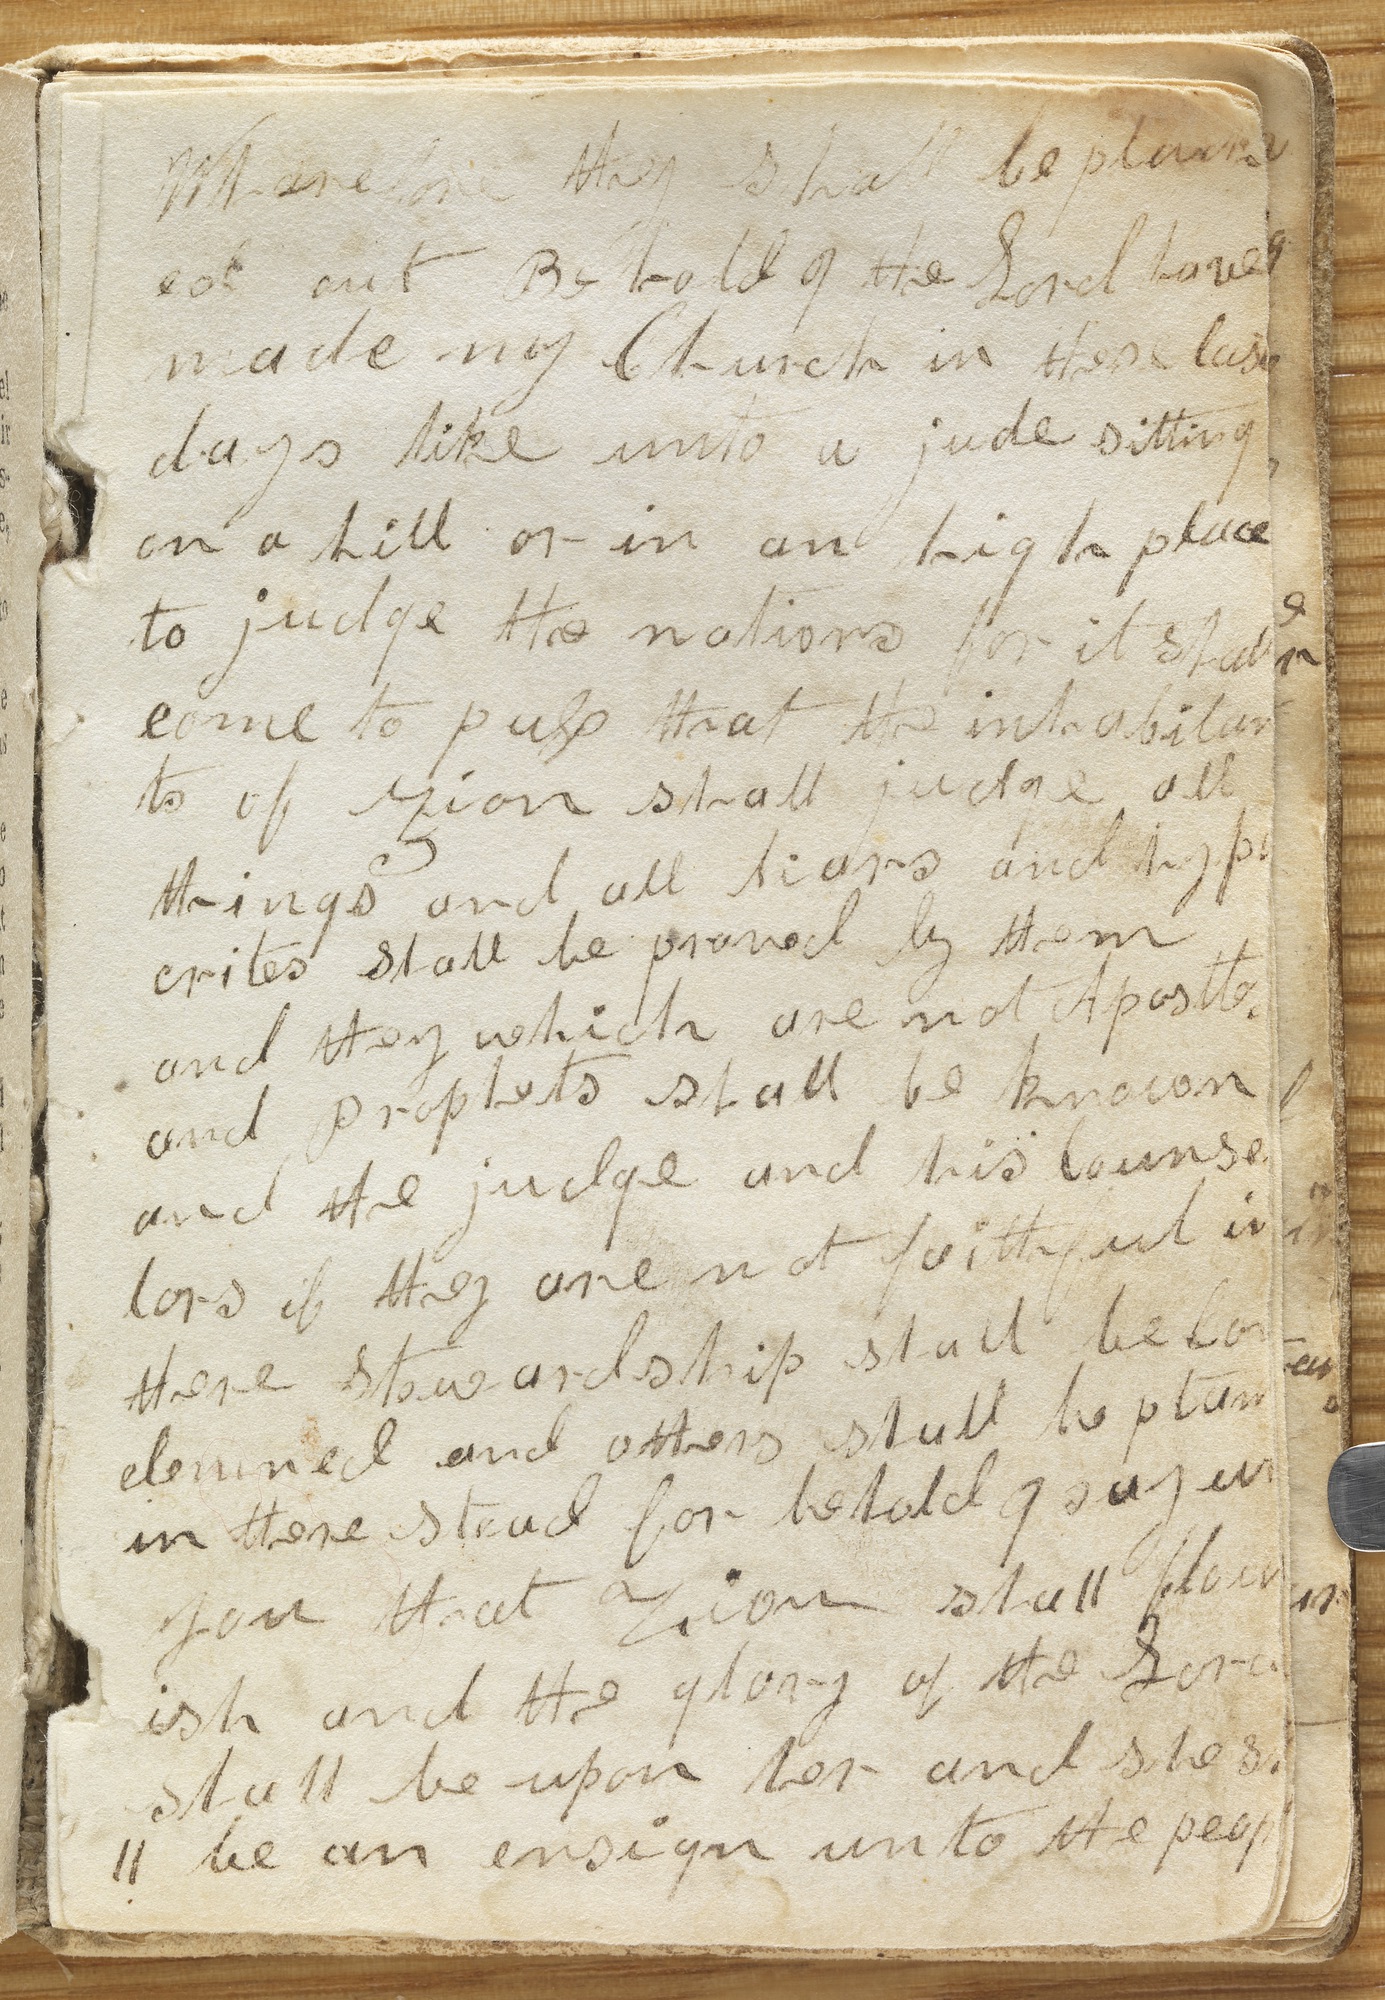 Wharefore they shall be pluck
ed out Behold I the Lord have
made my Church in these last
days like unto a jude sitting
on a hill or in an high place
to judge the nations for it shall
come to pass that the inhabitan
ts of Zion shall judge all
things and all liars and hypo
crites shall be proved by them
and they which are not Apostles
and prophets shall be known
and the judge and his Counse
lors if they are not faithful in
there stewardship shall be con
demned and others shall be plan
in there stead for behold I say un
you that Zion shall flour
ish and the glory of the Lord
shall be upon her and she s
ll be an ensign unto the peop